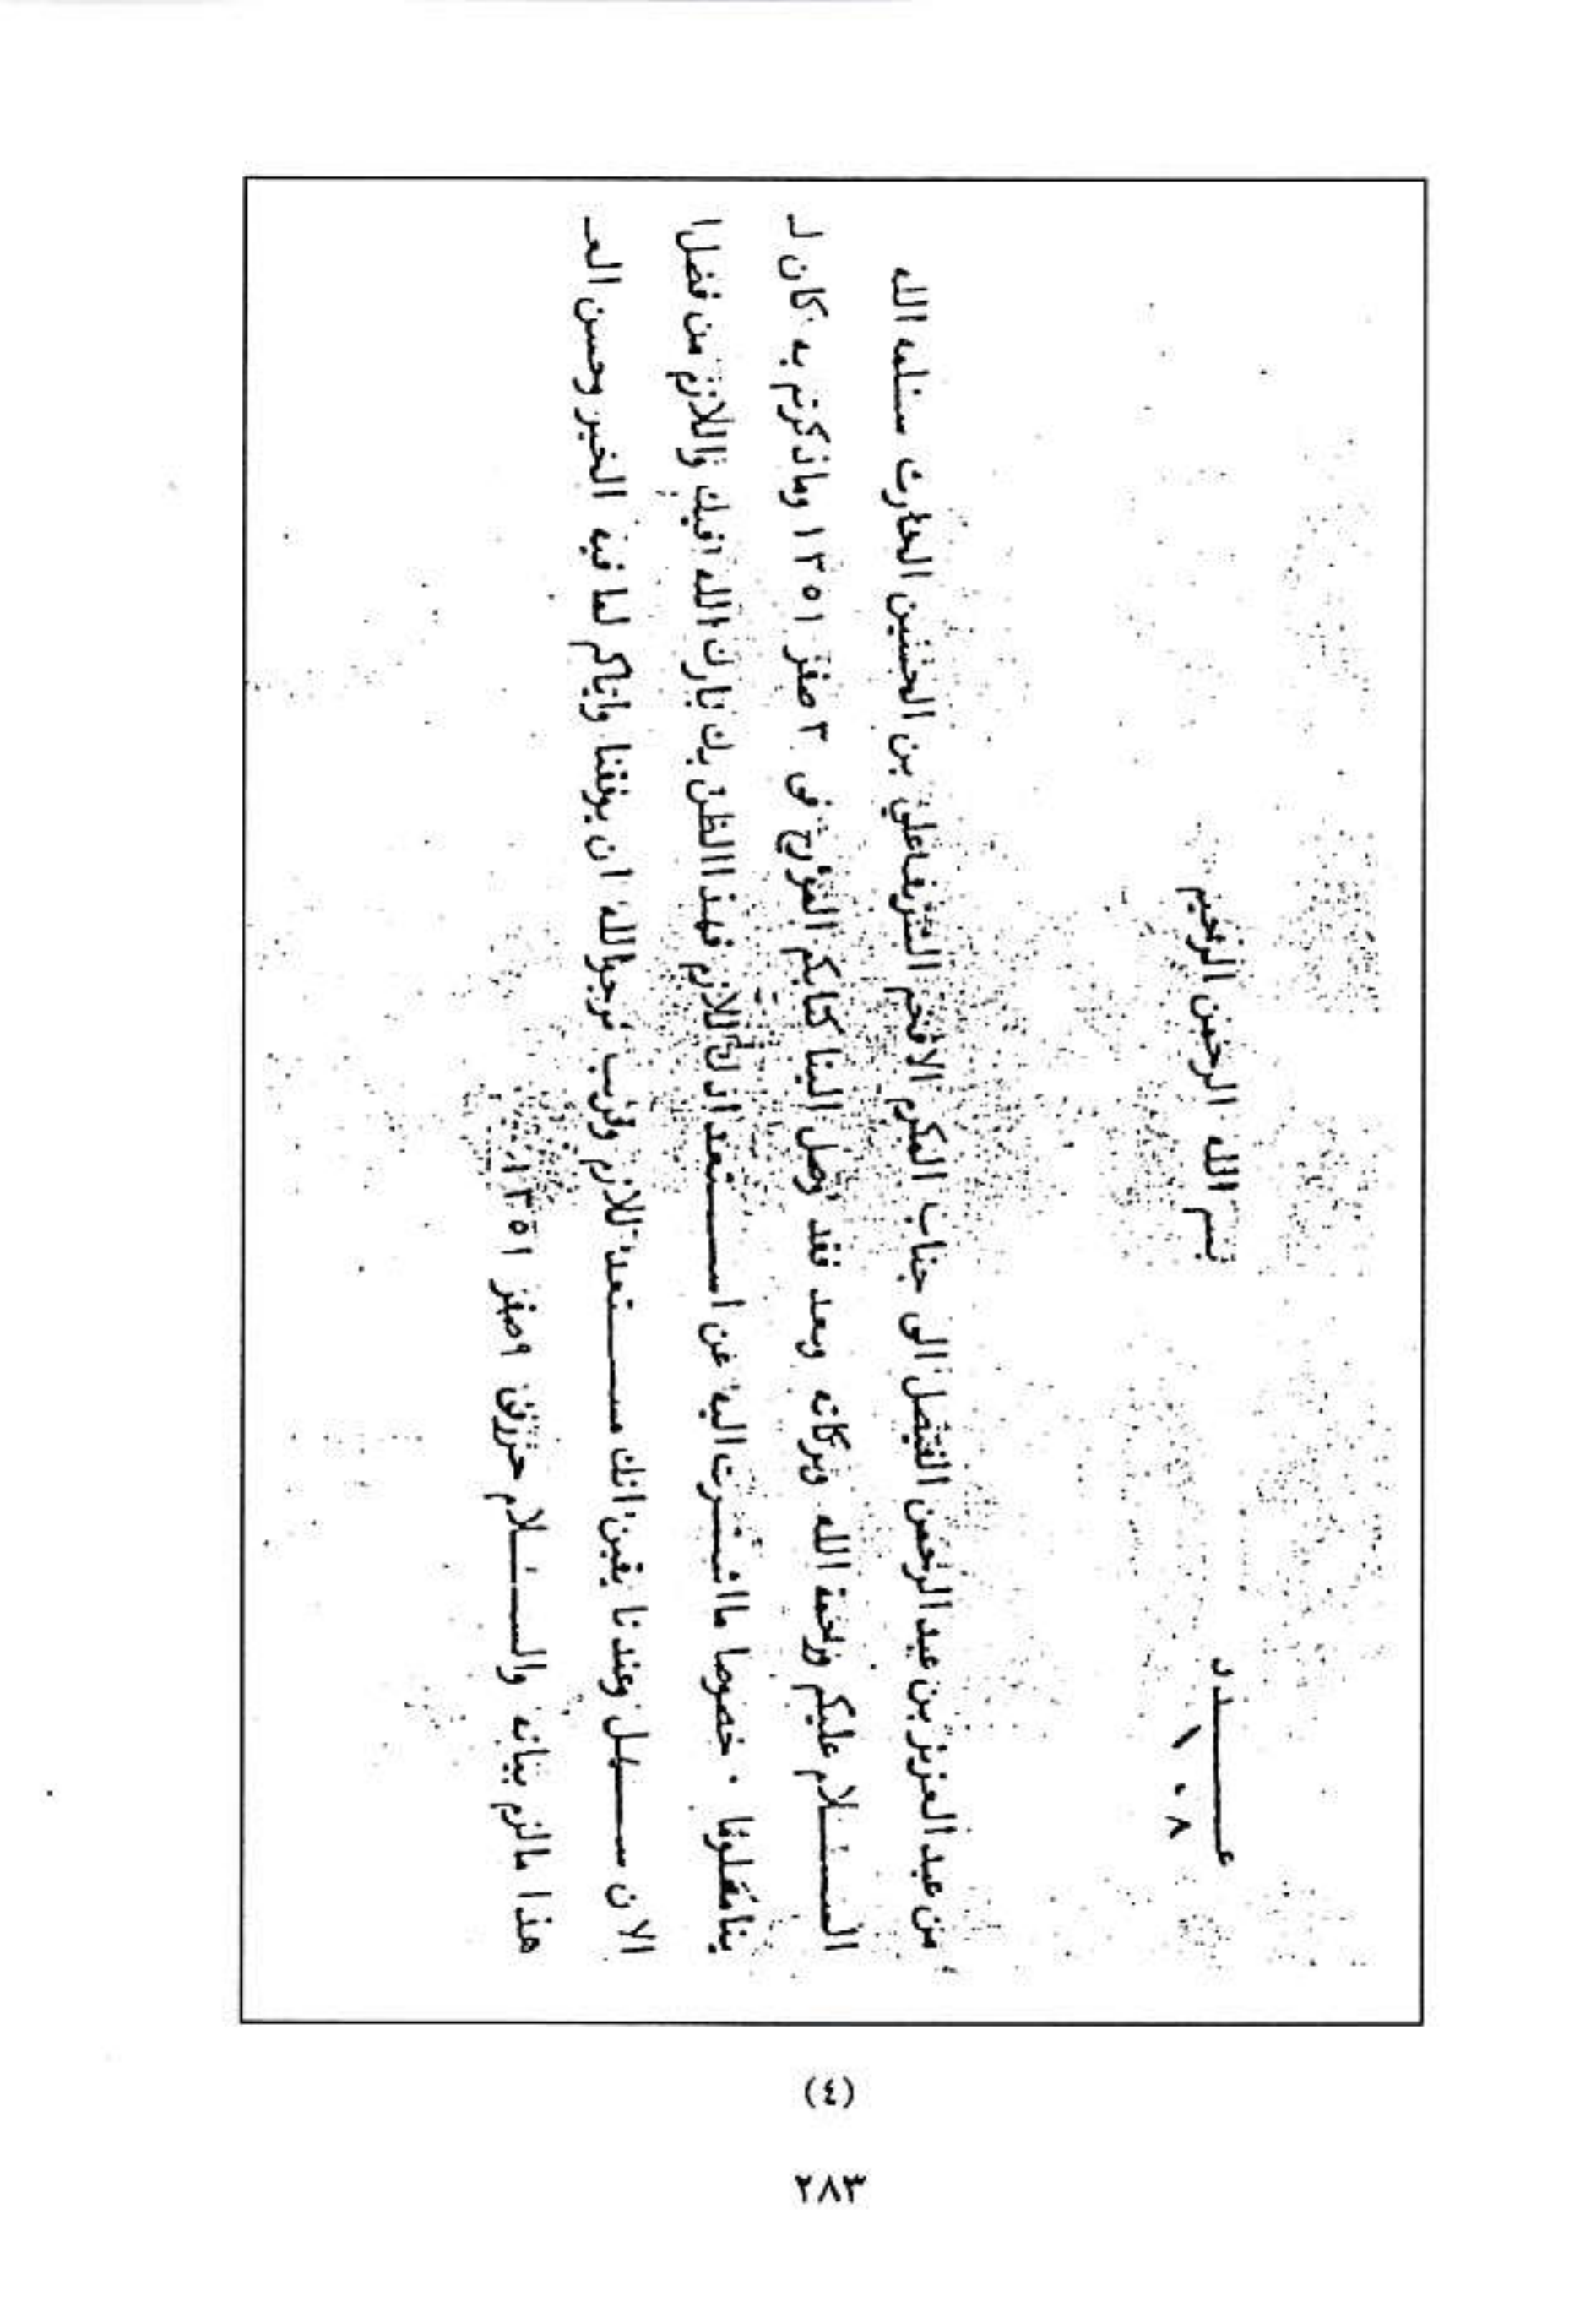 بسم الله الرحمن الرحيم
عـــــدد
١٠٨
من عبد العزيز بن عبد الرحمن الفيصل الى جناب المكرم الافخم الشريف علي بن الحسين الحارث سلمه الله
الســـلام عليكم ورحمة الله وبركاته وبعد فقد وصل الينا كتابكم المؤرخ فى ٣ صفر ١٣٥١ وما ذكرتم به كان لـ
بنا معلوما ٠ خصوصا ما اشــرت اليه عن اســـتعدادك للازم فهذا الظن بك بارك الله فيك واللازم من فضل ا
الان ســـهل وعندنا يقين انك مســـتعد للازم وقرب نرجو الله ان يوفقنا واياكم لما فيه الخير وحسن العـ
هذا ما لزم بيانه والســـلام حرر فى ٩ صفر ١٣٥١
(٤)
٢٨٣